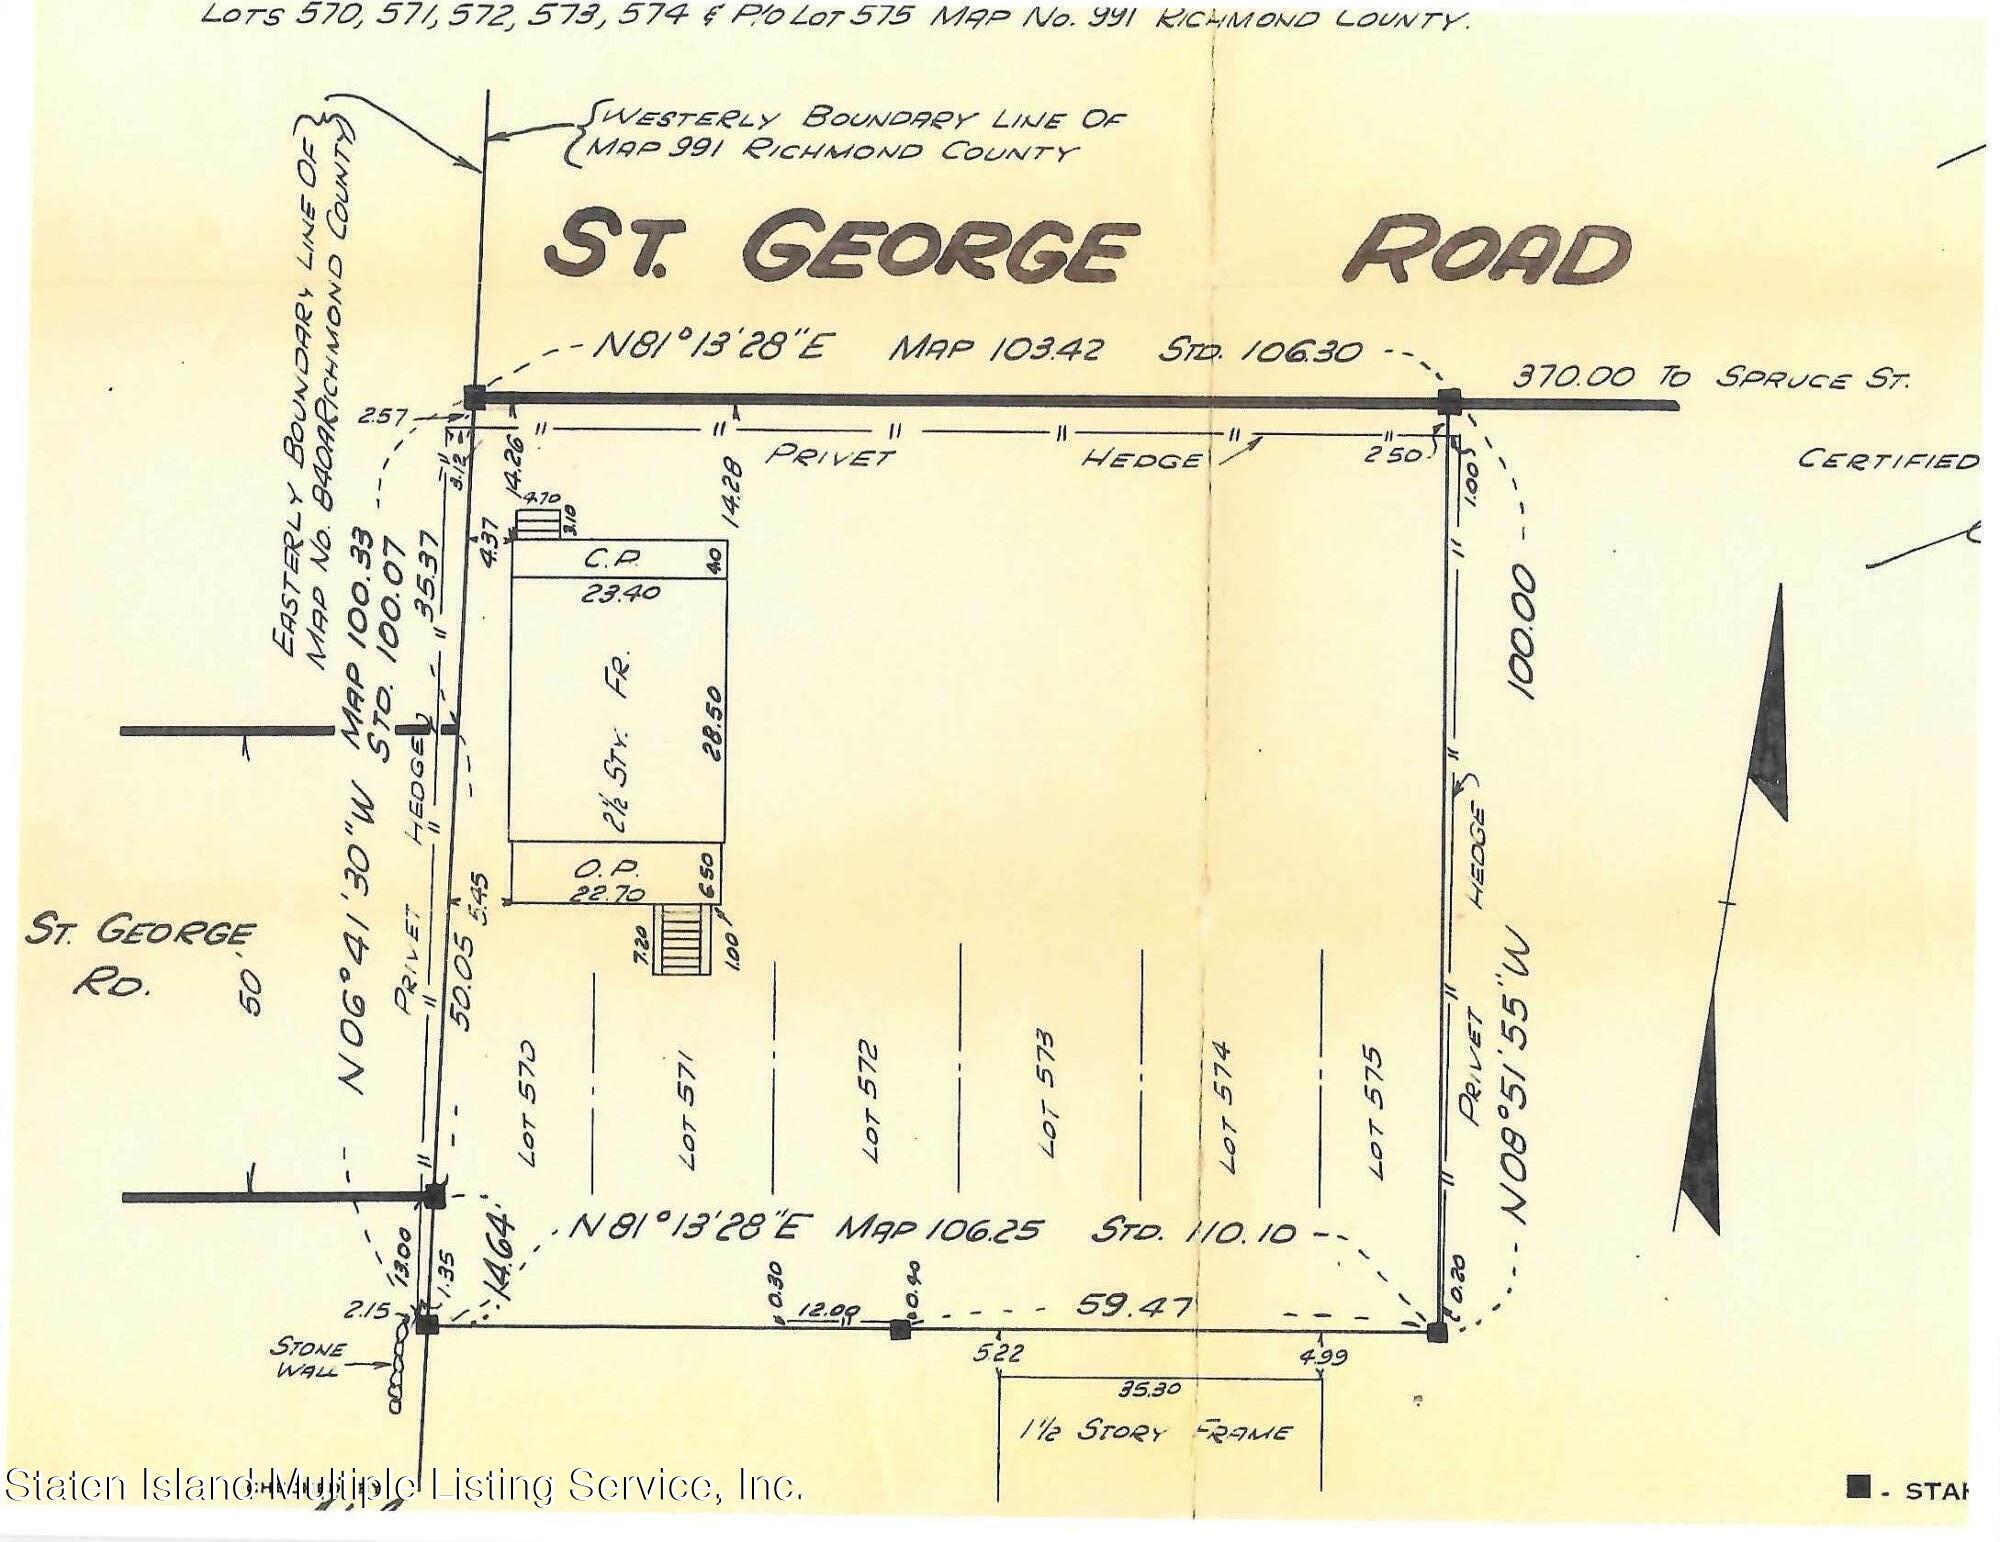 LOTS 570, 571, 572, 573, 574 & P/O LOT 575 MAP NO. 991 RICHMOND COUNTY.
WESTERLY BOUNDARY LINE OF
MAP 991 RICHMOND COUNTY
EASTERLY BOUNDARY LINE OF
MAP NO. 840A RICHMOND COUNTY
ST. GEORGE ROAD
N81°13'28"E MAP 103.42 STD. 106.30
370.00 TO SPRUCE ST.
2.57
3.12
14.26
14.28
PRIVET HEDGE
2.50
1.00
CERTIFIED
4.70
3.10
4.37
C.P.
4.0
23.40
MAP 100.33
STD. 100.07
N06°41'30"W
35.37
PRIVET HEDGE
2½ STY. FR.
28.50
100.00
PRIVET HEDGE
N08°51'55"W
O.P.
22.70
6.50
5.45
50.05
7.20
1.00
ST. GEORGE
RD.
50'
LOT 570
LOT 571
LOT 572
LOT 573
LOT 574
LOT 575
N81°13'28"E MAP 106.25 STD. 110.10
13.00
1.35
14.64'
0.30
12.00
0.40
59.47
0.20
2.15
STONE
WALL
5.22
4.99
35.30
1½ STORY FRAME
Staten Island Multiple Listing Service, Inc.